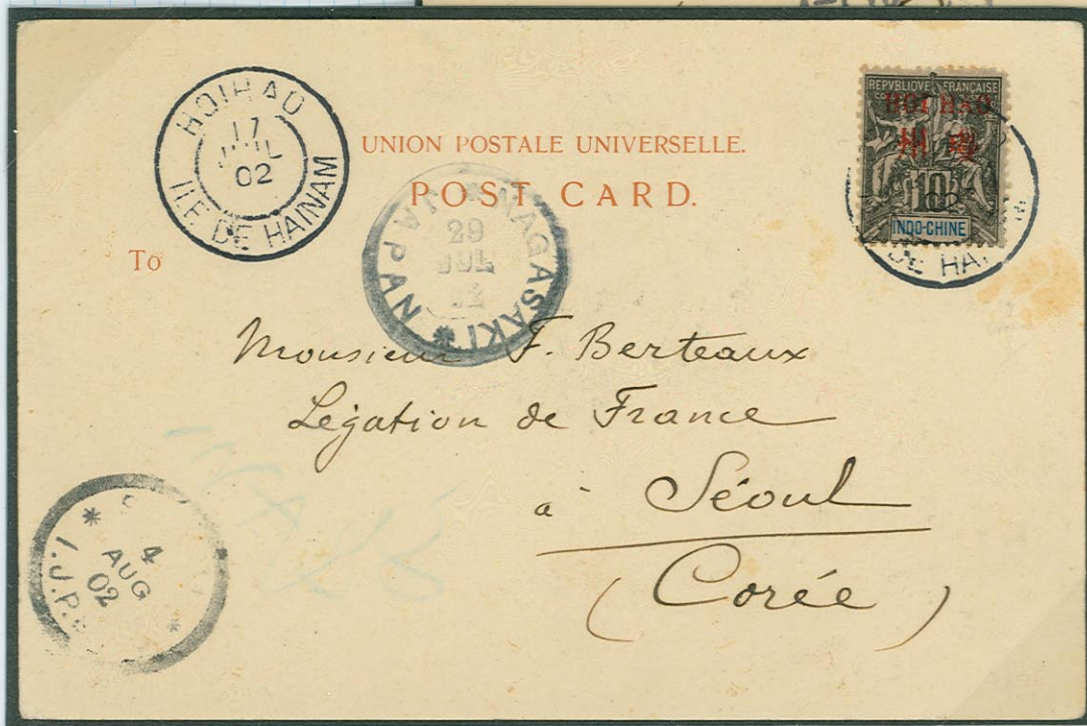 HOIHAO
17
JUIL
02
ILE DE HAINAM
UNION POSTALE UNIVERSELLE.
POST CARD.
To
REPVBLIQVE FRANÇAISE
HOI HAO
州 瓊
10
INDO-CHINE
DE HAI
NAGASAKI
29
JUL
02
JAPAN
Monsieur F. Berteaux
Légation de France
à Séoul
(Corée)
4
AUG
02
I.J.P.